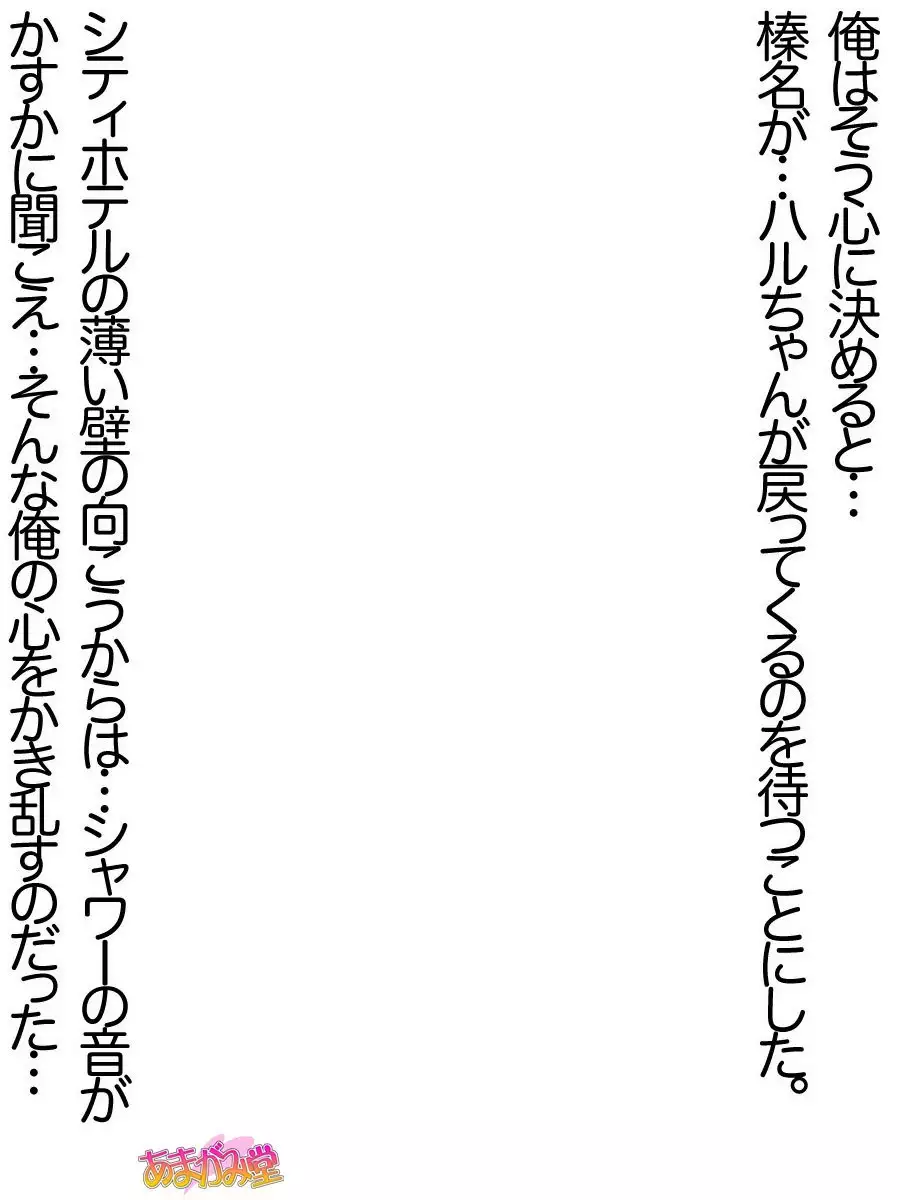 俺はそう心に決めると…
榛名が…ハルちゃんが戻ってくるのを待つことにした。
シティホテルの薄い壁の向こうからは…シャワーの音が
かすかに聞こえ…そんな俺の心をかき乱すのだった…
あまがみ堂